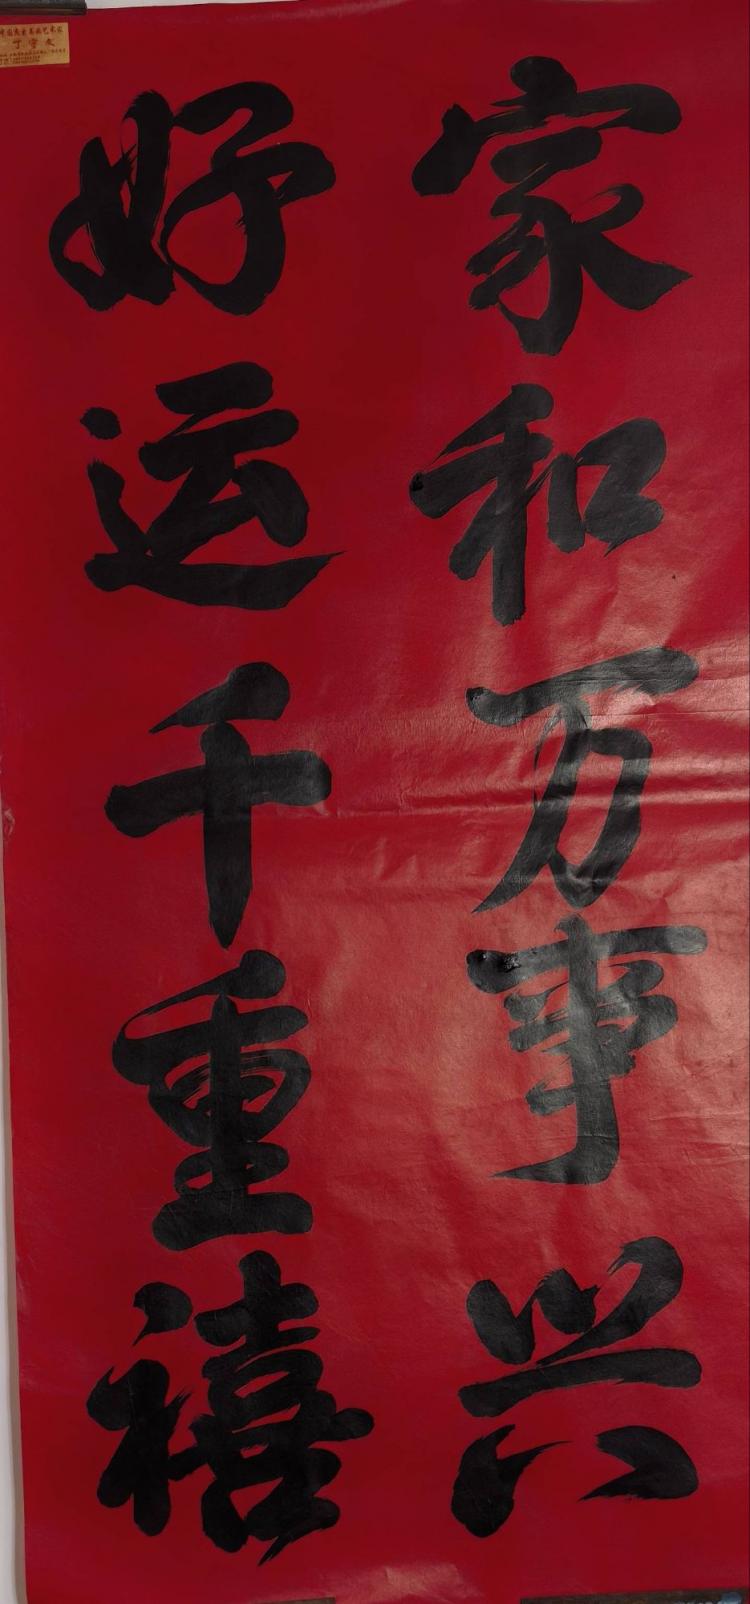 家和万事兴
好运千重禧